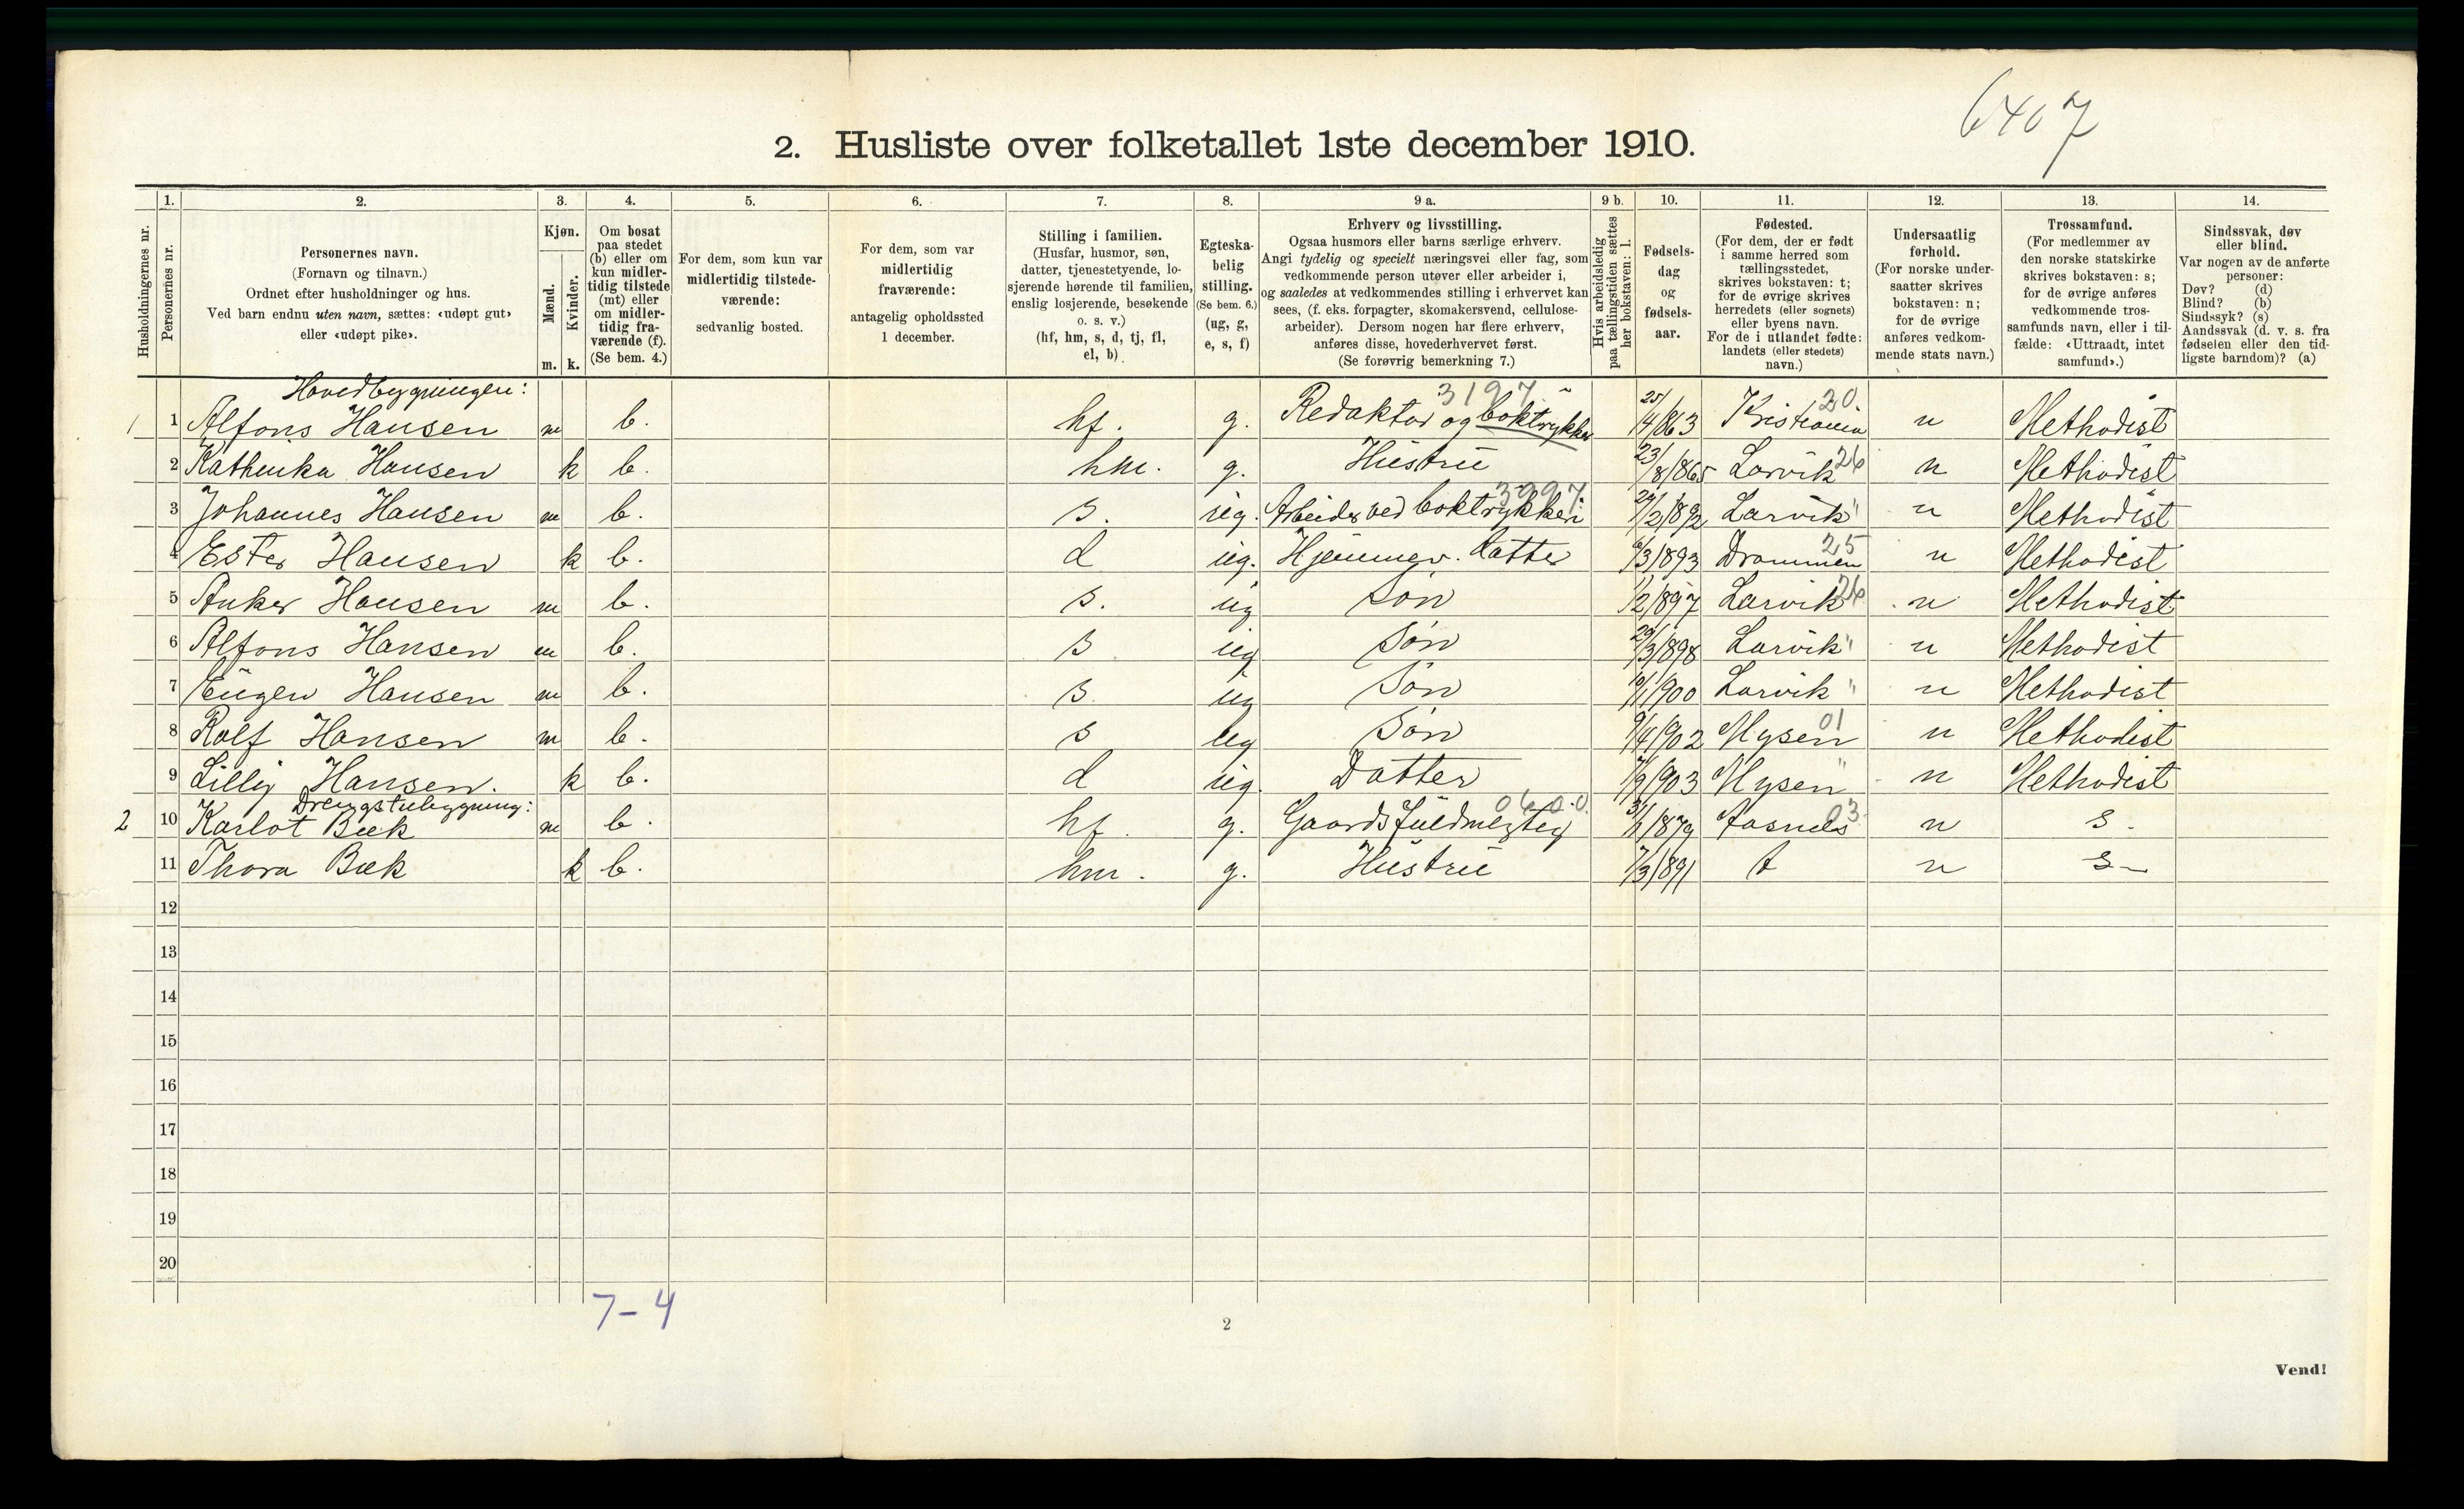 6407
2. Husliste over folketallet 1ste december 1910.
Husholdningernes nr.
1. Personernes nr.
2. Personernes navn. (Fornavn og tilnavn.) Ordnet efter husholdninger og hus. Ved barn endnu uten navn, sættes: «udøpt gut» eller «udøpt pike».
3. Kjøn. Mænd. m. Kvinder. k.
4. Om bosat paa stedet (b) eller om kun midlertidig tilstede (mt) eller om midlertidig fraværende (f). (Se bem. 4.)
5. For dem, som kun var midlertidig tilstedeværende: sedvanlig bosted.
6. For dem, som var midlertidig fraværende: antagelig opholdssted 1 december.
7. Stilling i familien. (Husfar, husmor, søn, datter, tjenestetyende, losjerende hørende til familien, enslig losjerende, besøkende o. s. v.) (hf, hm, s, d, tj, fl, el, b)
8. Egteskabelig stilling. (Se bem. 6.) (ug, g, e, s, f)
9 a. Erhverv og livsstilling. Ogsaa husmors eller barns særlige erhverv. Angi tydelig og specielt næringsvei eller fag, som vedkommende person utøver eller arbeider i, og saaledes at vedkommendes stilling i erhvervet kan sees, (f. eks. forpagter, skomakersvend, cellulosearbeider). Dersom nogen har flere erhverv, anføres disse, hovederhvervet først. (Se forøvrig bemerkning 7.)
9 b. Hvis arbeidsledig paa tællingstiden sættes her bokstaven: l.
10. Fødselsdag og fødselsaar.
11. Fødested. (For dem, der er født i samme herred som tællingsstedet, skrives bokstaven: t; for de øvrige skrives herredets (eller sognets) eller byens navn. For de i utlandet fødte: landets (eller stedets) navn.)
12. Undersaatlig forhold. (For norske undersaatter skrives bokstaven: n; for de øvrige anføres vedkommende stats navn.)
13. Trossamfund. (For medlemmer av den norske statskirke skrives bokstaven: s; for de øvrige anføres vedkommende trossamfunds navn, eller i tilfælde: «Uttraadt, intet samfund».)
14. Sindssvak, døv eller blind. Var nogen av de anførte personer: Døv? (d) Blind? (b) Sindssyk? (s) Aandssvak (d. v. s. fra fødselen eller den tidligste barndom)? (a)
Hovedbygningen: 3197 20
1 1 Alfons Hansen m b. hf. g. Redaktør og boktrykker 25/4/863 Kristiania n Methodist
2 Kathinka Hansen k b. hm. g. Hustru 23/8/865 Larvik 26 n Methodist
3 Johannes Hansen m b. s. ug. Arbeider ved boktrykkeri 3997 /2/892 Larvik " n Methodist
4 Ester Hansen k b. d ug. Hjemmev. datter /3/893 Drammen 25 n Methodist
5 Anker Hansen m b. s. ug Søn 1/2/897 Larvik 26 n Methodist
6 Alfons Hansen m b. s ug Søn 29/3/898 Larvik " n Methodist
7 Eugen Hansen m b. s. ug Søn /1/900 Larvik " n Methodist
8 Rolf Hansen m b. s ug Søn 9/4/902 Mysen 01 n Methodist
9 Lilly Hansen. k b. d ug. Datter 7/9/903 Mysen " n Methodist
Drengstubygning:
2 10 Karlot Bæk m b. hf. g. Gaardsfuldmegtig 0600 3/1/879 03 n s.
11 Thora Bæk k b. hm. g. Hustru 7/3/891 t n s
12
13
14
15
16
17
18
19
20
7-4
2
Vend!